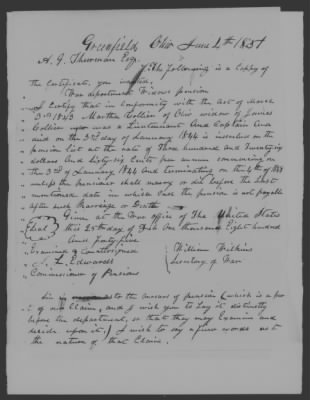 Greenfield, Ohio June 4th 1851
A. G. Thurman Esq.
The Following is a Copy of
the Certificate, you
" War department Widows pension
" I Certify that in Conformity with the Act of
" 3rd 1843 Martha Collier of Ohio widow of James
" Collier who was a Lieutenant and Captain and
" on the 3rd day of January 1844 is inserted on the
" pension list at the rate of Three hundred and Twenty six
" dollars And Sixty six Cents per annum commencing on
" the 3rd of January 1844 and terminating on the 4th of
" unless the pensioner shall marry or die before the last
" mentioned date in which Case the pension is not payable
" after such Marriage or Death
" Given at the War office of The United States
" this 25th day of Feb One thousand Eight hundred
" And forty five
" Examined & Countersigned
William Wilkins
" J. L. Edwards
Secretary of War
" Commissioner of Pensions
to the amount of pension (which is a
of our claim, and I wish you to lay it distinctly
before the department, so that they may Examine and
decide upon it,) I wish to say a few words as to
the nature of that Claim.